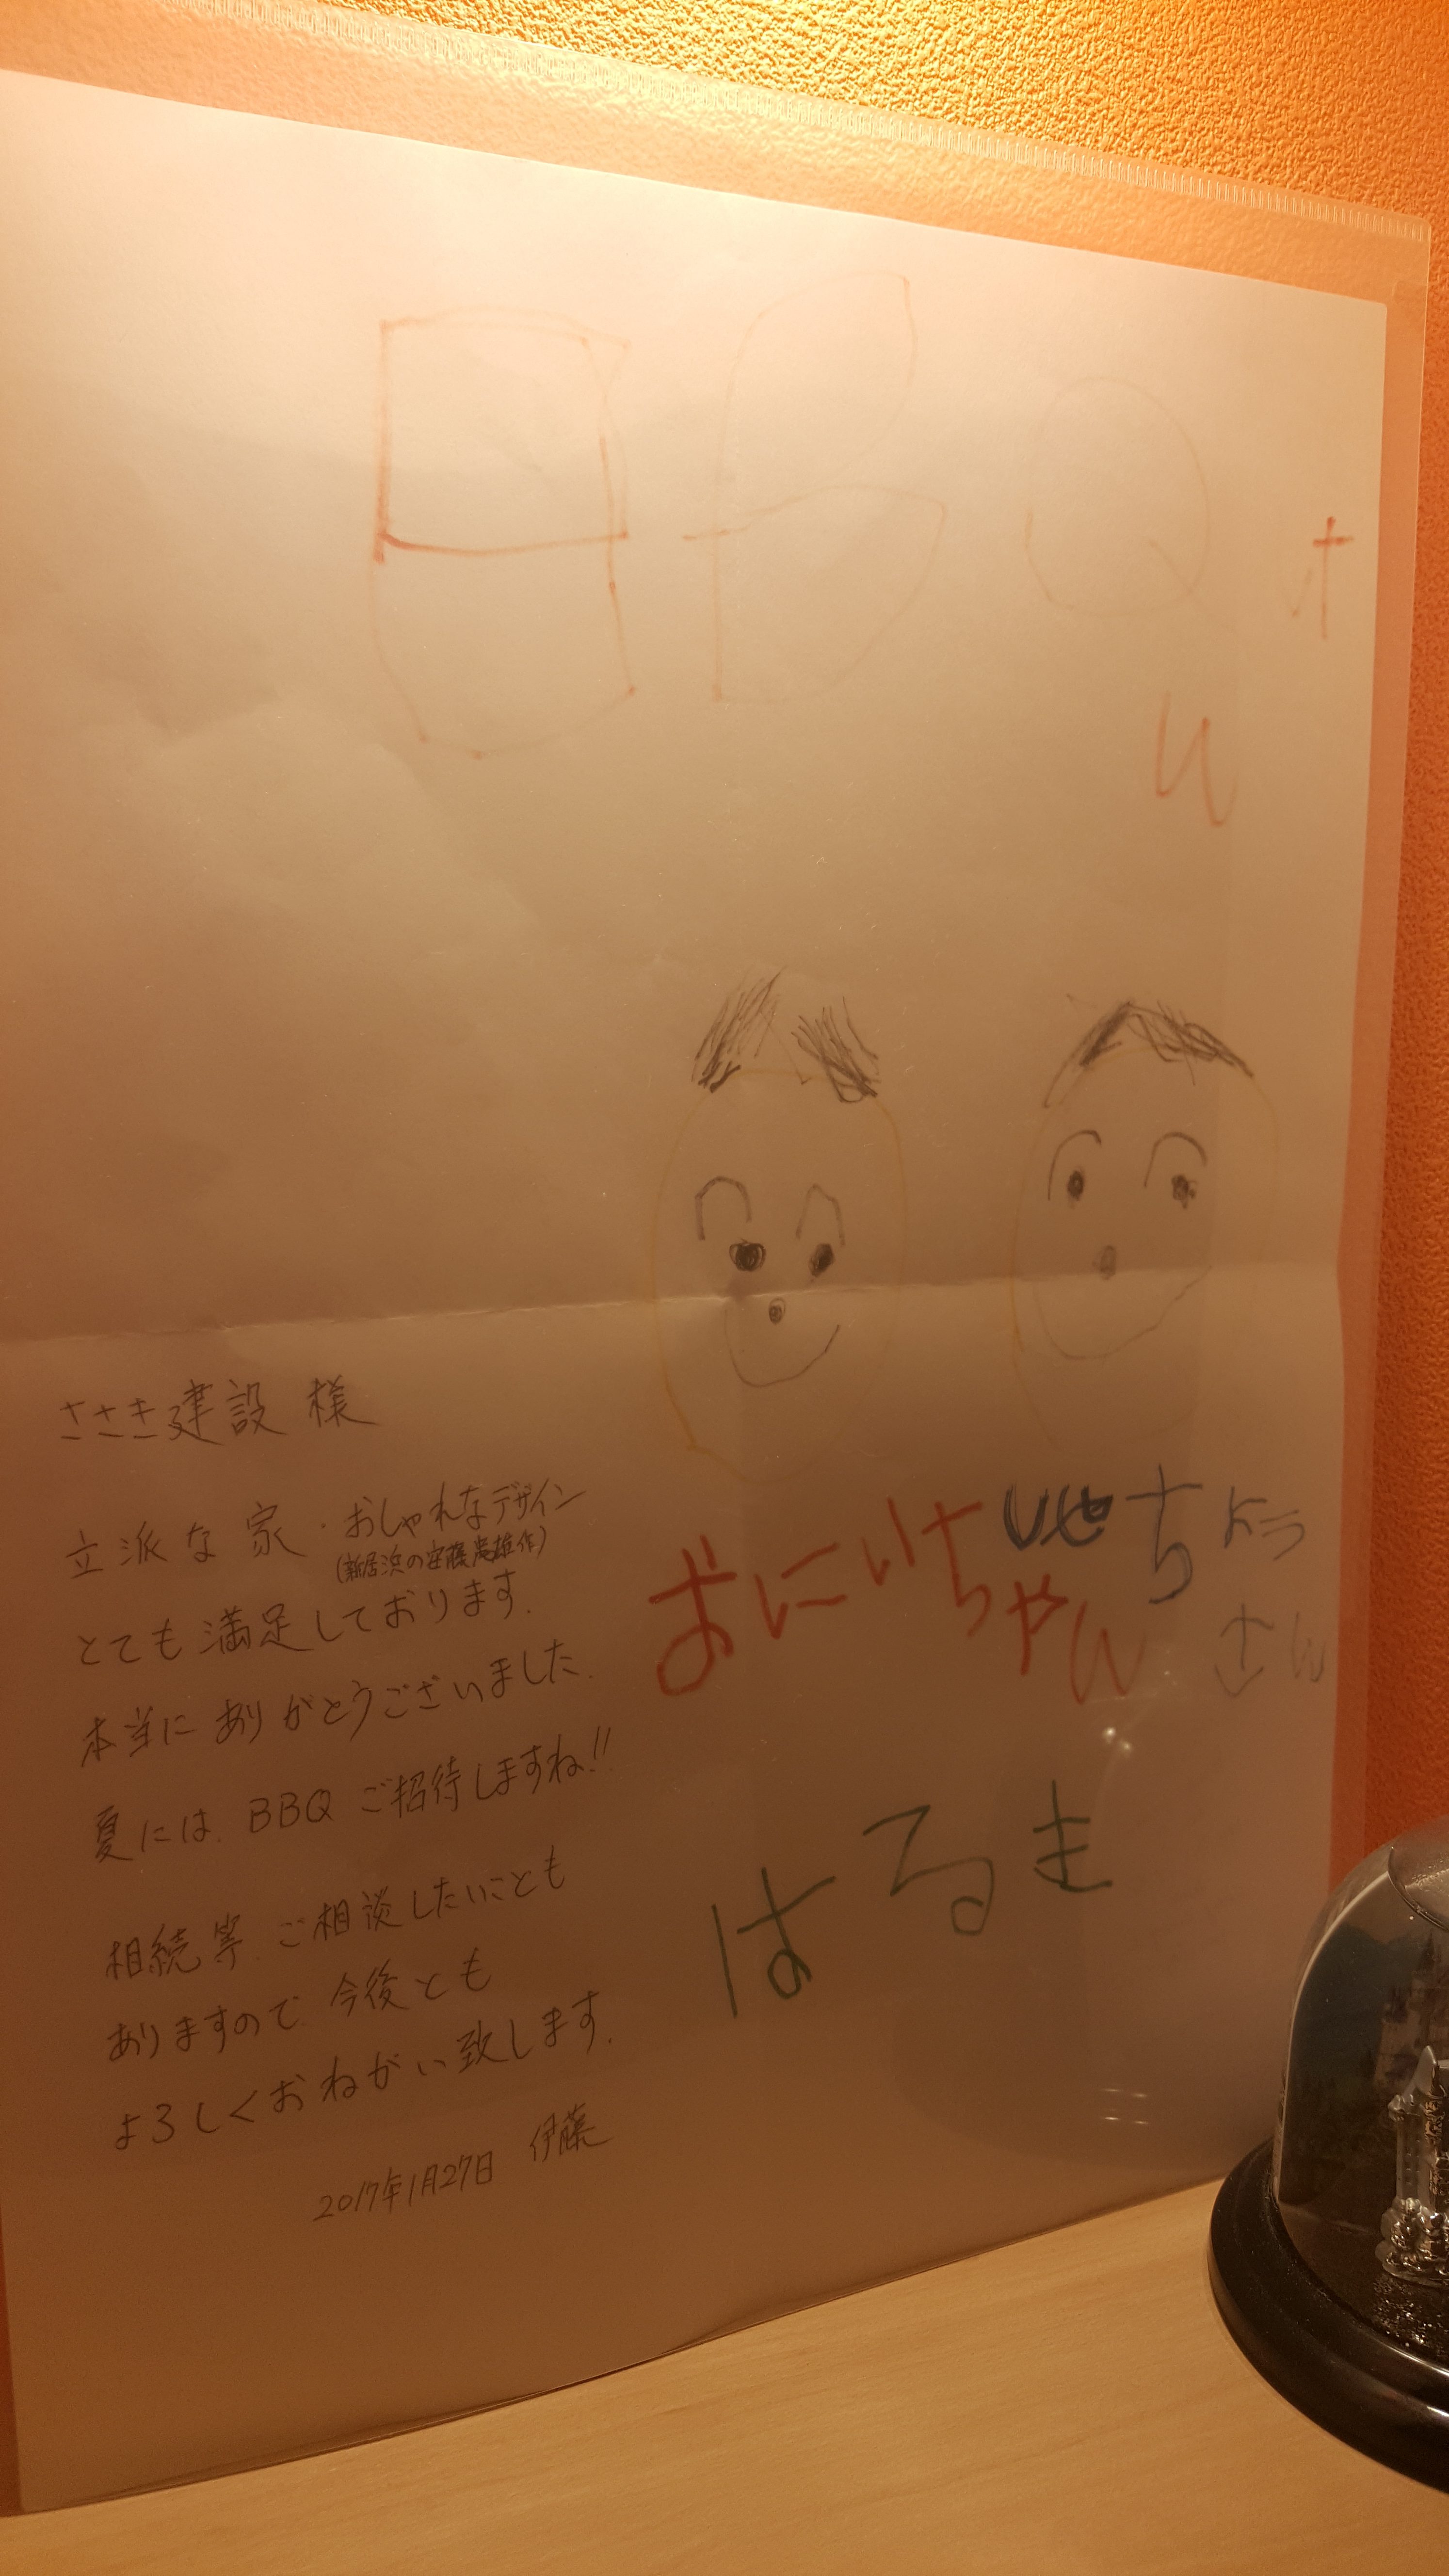 BBQ
ささき建設 様
立派な家・おしゃれなデザイン
(新居浜の安藤忠雄作)
とても満足しております.
本当にありがとうございました.
夏には、BBQ ご招待しますね!!
相続等、ご相談したいことも
ありますので、今後とも
よろしくおねがい致します.
2017年1月27日 伊藤
おにいちゃん
さん
はるき